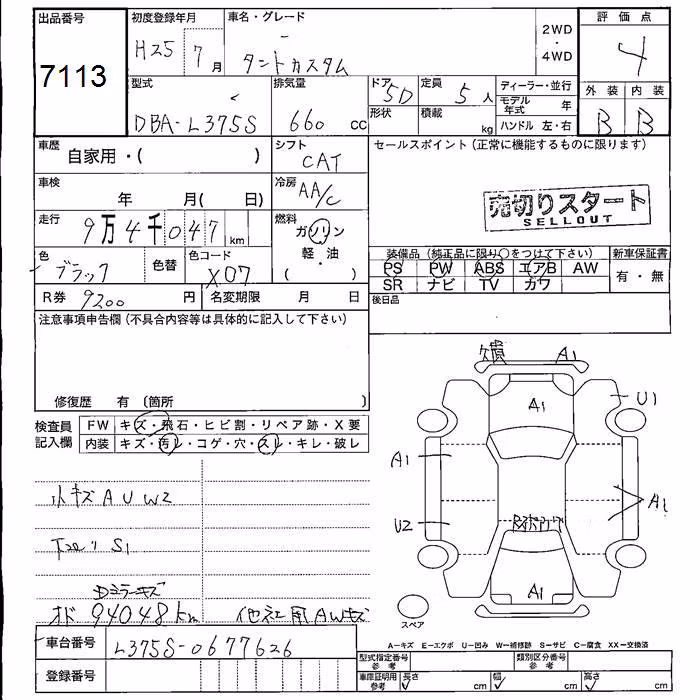 出品番号 初度登録年月 車名・グレード 2WD・4WD 評価点
7113 H25 7月 タントカスタム 4
型式 排気量 ドア 5D 定員 5人 ディーラー・並行 外装 内装
DBA-L375S 660 cc 形状 積載 kg モデル年式 年 B B
ハンドル 左・右
車歴 自家用・( ) シフト CAT セールスポイント (正常に機能するものに限ります)
車検 年 月( 日) 冷房 AA/C
売切りスタート
SELLOUT
走行 9万4千047km 燃料 ガソリン・軽油( )
色 ブラック 色替 色コード X07
装備品 (純正品に限り○をつけて下さい) 新車保証書
PS PW ABS エアB AW 有・無
SR ナビ TV カワ
R券 9200円 名変期限 月 日 後日品
注意事項申告欄 (不具合内容等は具体的に記入して下さい)
修復歴 有 (箇所 )
検査員記入欄 FW キズ・飛石・ヒビ割・リペア跡・X要
内装 キズ・汚レ・コゲ・穴・スレ・キレ・破レ
欠損 A1
A1 U1
A1 A1
U2
A1
小キズAUW2
下回り S1
Dミラーキズ
オド 94048km 他社用AWキズ
スペア
A-キズ E-エクボ U-凹み W-補修跡 S-サビ C-腐食 XX-交換済
車台番号 L375S-0677626
登録番号
型式指定番号 参考 類別区分番号 参考
車庫証明用 参考 長さ cm 幅 cm 高さ cm